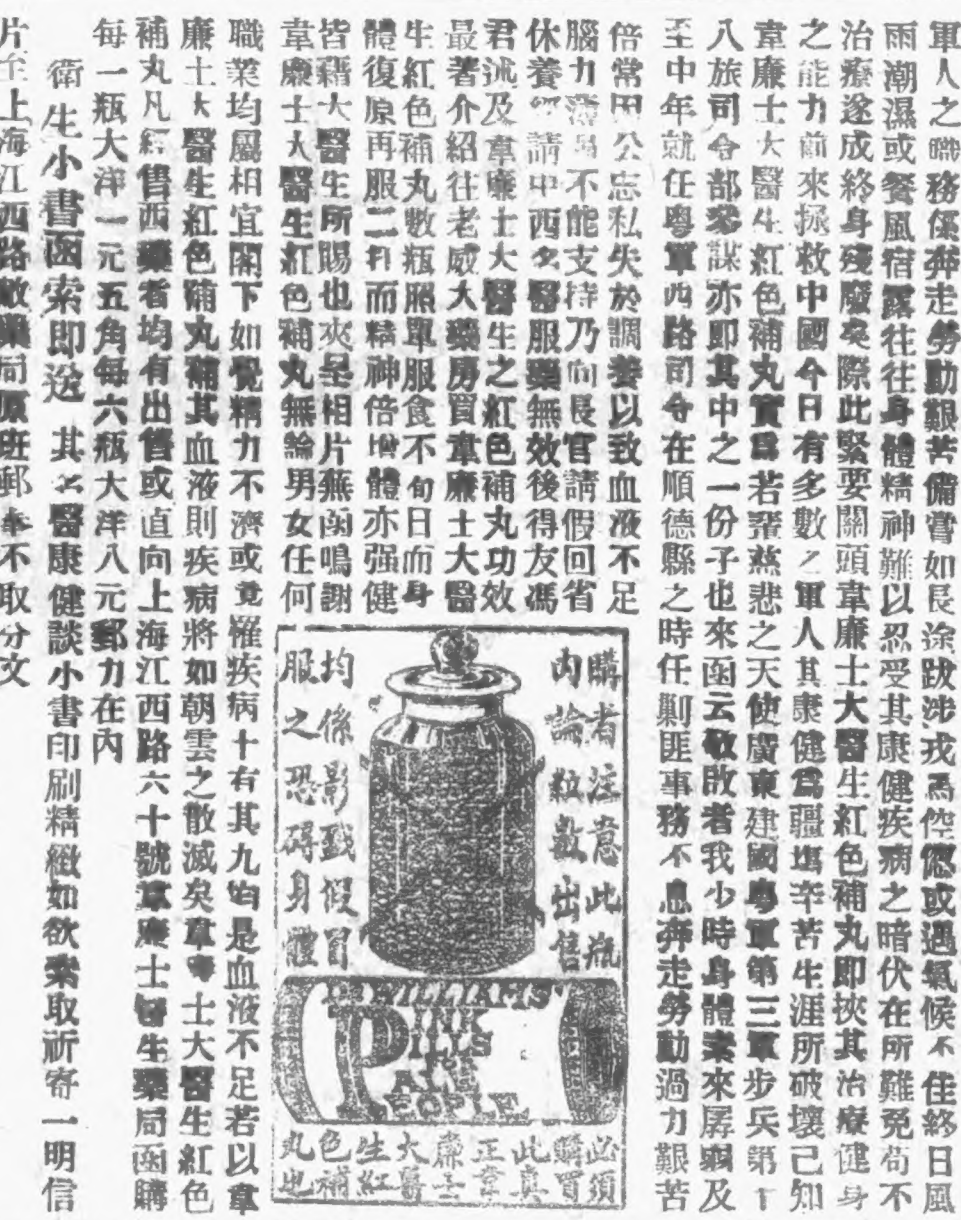 軍人之職務僕奔走勞動艱苦備嘗如長途跋涉戎馬倥傯或遇氣候不佳終日風
雨潮濕或餐風宿露往往身體精神難以忍受其康健疾病之暗伏在所難免苟不
治療遂成終身殘廢矣際此緊要關頭韋廉士大醫生紅色補丸即挾其治療健身
之能力前來拯救中國今日有多數之軍人其康健爲疆塲辛苦生涯所破壞已知
韋廉士大醫生紅色補丸實爲若輩慈悲之天使廣東建國粵軍第三軍步兵第十
八旅司令部參謀亦即其中之一份子也來函云敬啟者我少時身體素來孱弱及
至中年就任粵軍西路司令在順德縣之時任剿匪事務不息奔走勞動過力艱苦
倍常因公忘私失於調養以致血液不足
腦力 不能支持乃向長官請假回省
休養 請中西名醫服藥無效後得友馮
君述及韋廉士大醫生之紅色補丸功效
最著介紹往老威大藥房買韋廉士大醫
生紅色補丸數瓶照單服食不旬日而身
體復原再服二打而精神倍增體亦强健
皆藉大醫生所賜也夾呈相片蕪函鳴謝
韋廉士大醫生紅色補丸無論男女任何
職業均屬相宜閣下如覺精力不濟或竟罹疾病十有其九均是血液不足若以韋
廉士大醫生紅色補丸補其血液則疾病將如朝雲之散滅矣韋 士大醫生紅色
補丸凡經售西藥者均有出售或直向上海江西路六十號韋廉士醫生藥局函購
每一瓶大洋一元五角每六瓶大洋八元郵力在內
衛生小書函索即送 其名醫康健談小書印刷精緻如欲索取祈寄一明信
片至上海江西路敝藥局原班郵奉不取分文
購者注意此瓶
內論粒數出售
均係影戤假冒
服之恐碍身體
DR WILLIAMS'
PINK
PILLS
FOR
PALE
PEOPLE
必須購買此真正韋廉士大醫生紅色補丸也